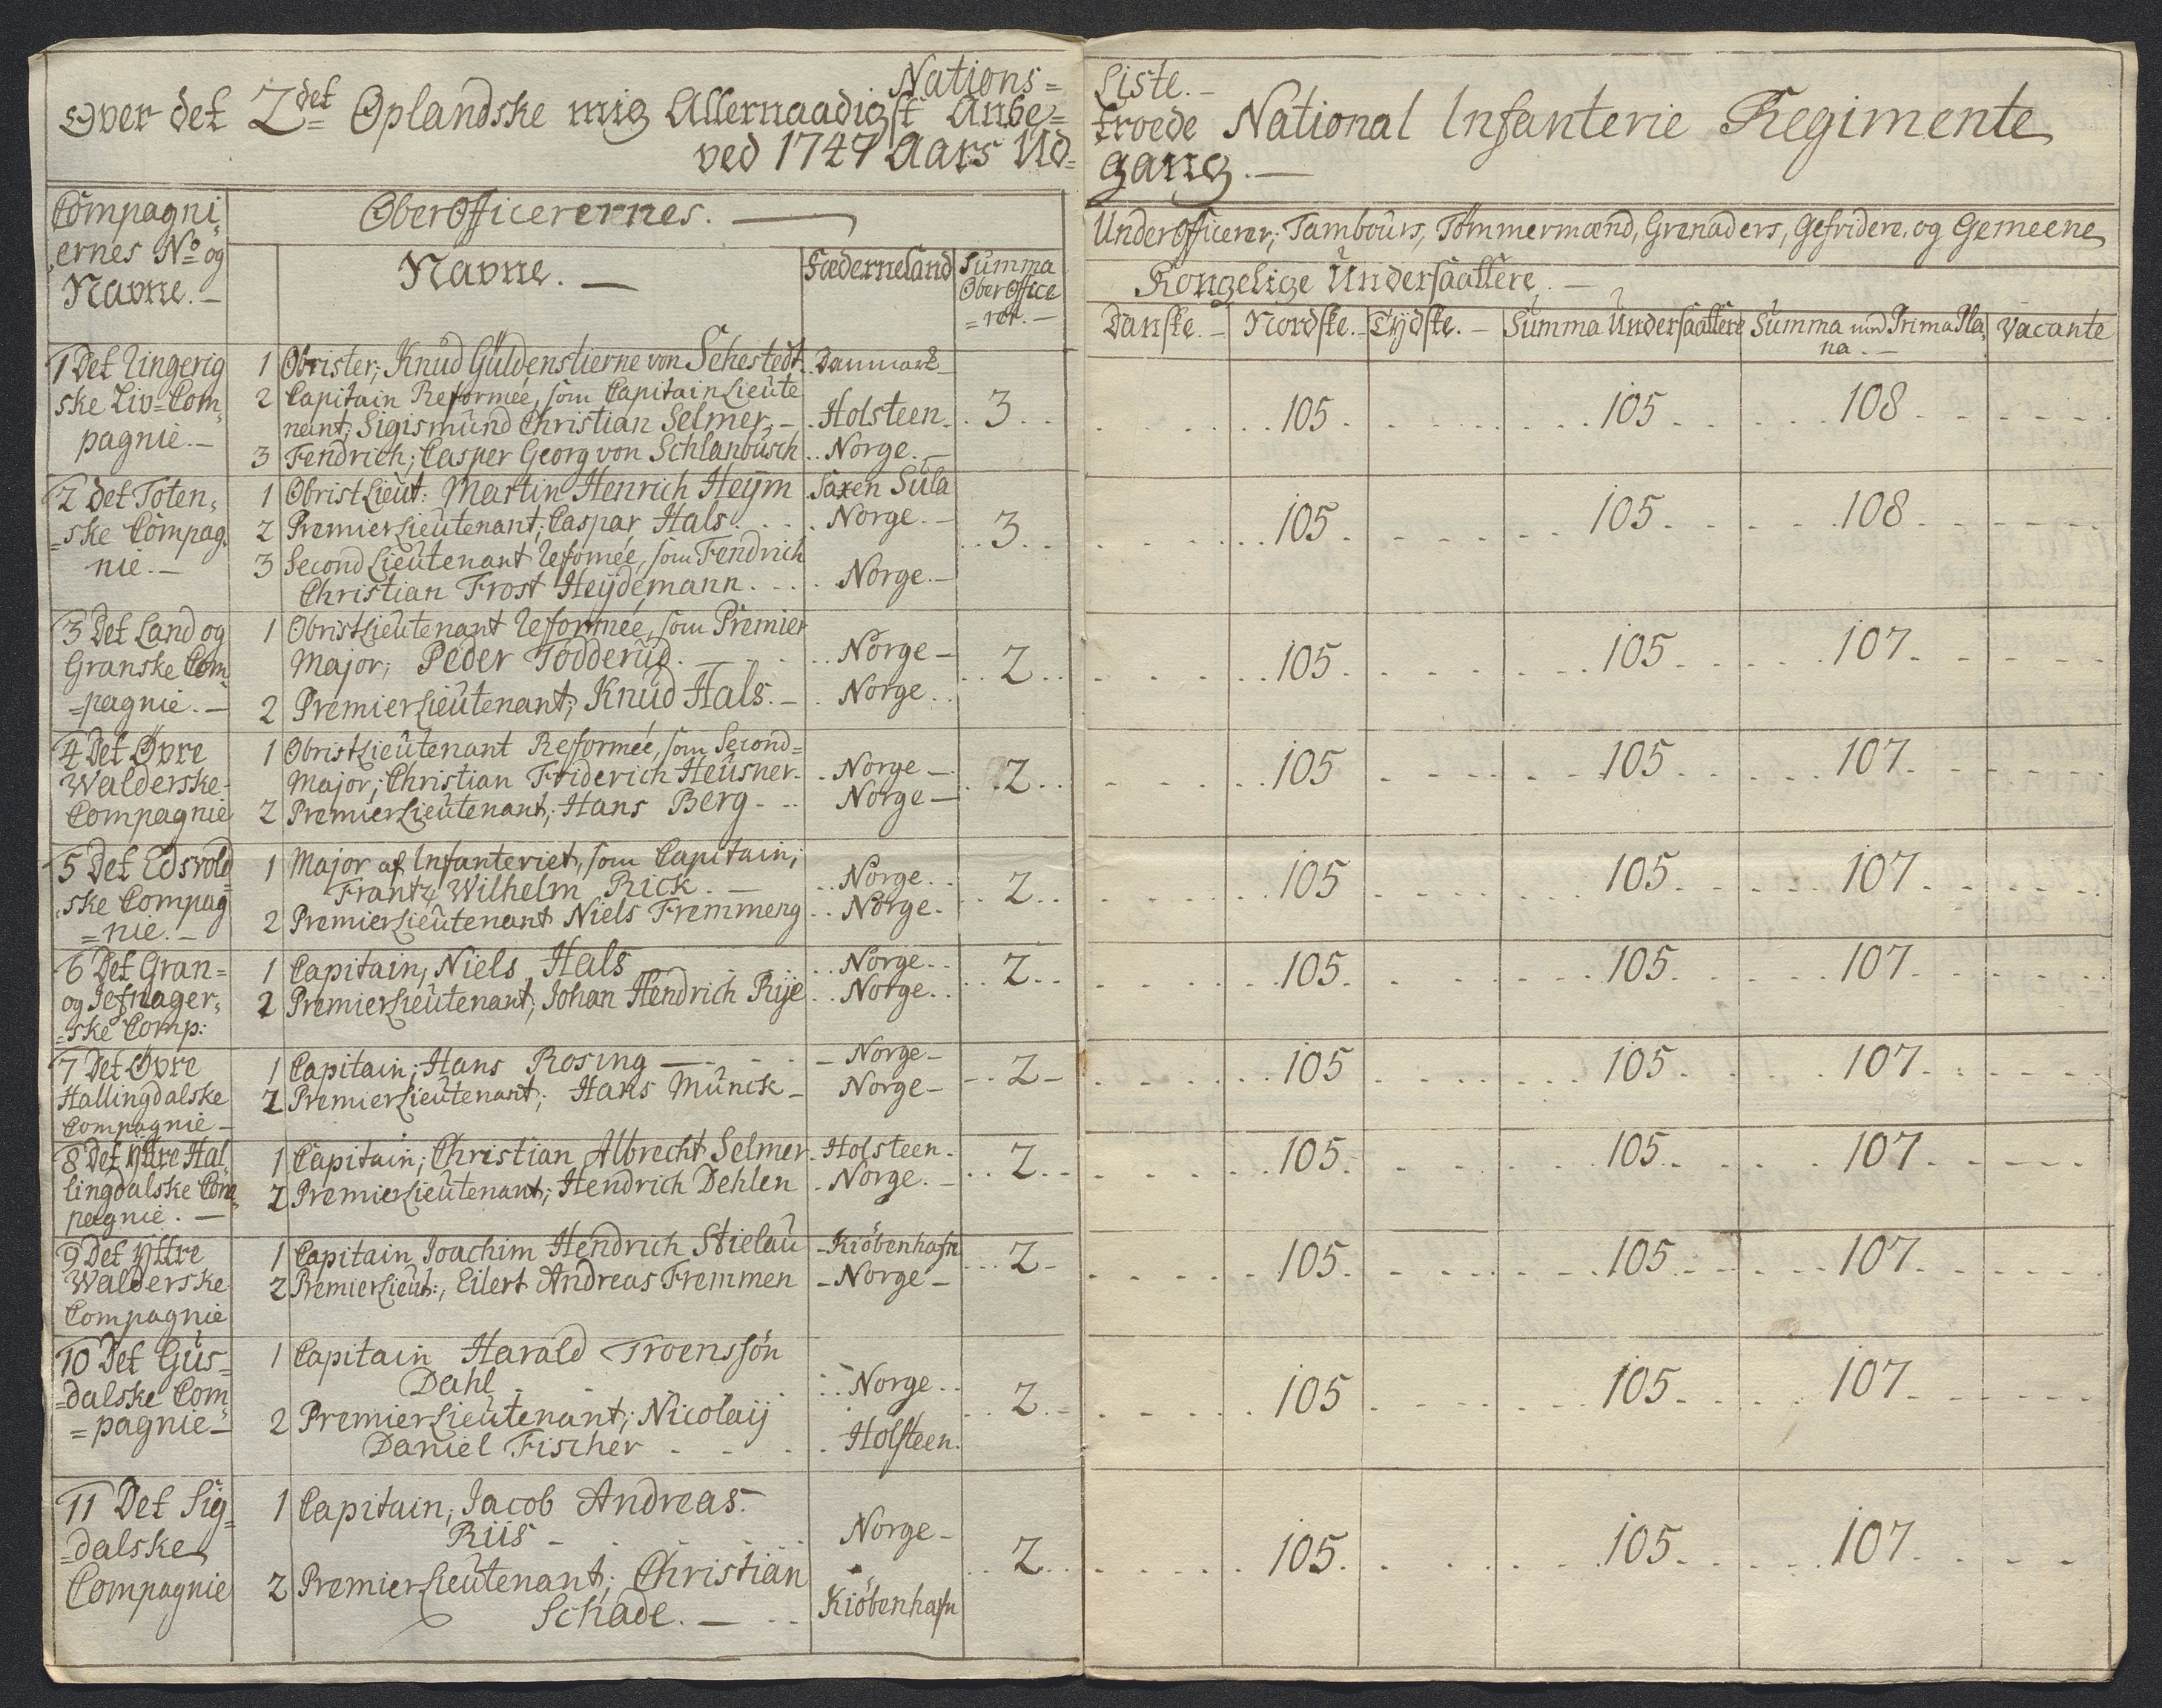 Nations=
Over det 2det Oplandske mig Allernaadigst Anbe=
ved 1747 Aars Ud=
Liste.-
troede National Infanterie Regimente
gang.-
Compagni,
,ernes No og
Navne.-
OberOfficerernes.
Navne.
Fæderneland
Summa
OberOffice
=rer.-
UnderOfficerer, Tambours, Tømmermænd, Grenaders, Gefridere, og Gemeene
Kongelige Undersaattere.-
Danske.- Nordske.- Tydske.- Summa Undersaattere Summa und Prima Pla,
na.-
Vacante
1 Det Ringerig
ske Liv=Com,
pagnie.-
1 Obrister; Knud Güldenstierne von Sehestedt. Danmark
2 Capitain Reformée, som Capitain Lieute
nant; Sigismund Christian Selmer.- Holsteen. 3 105 105 108
3 Fendrich; Casper Georg von Schlanbusch Norge.-
2 det Toten,
=ske Compag,
nie.-
1 ObristLieut: Martin Henrich Heÿm Saxen Sula
2 PremierLieutenant; Caspar Hals Norge.- 3 105 105 108
3 SecondLieutenant Refomée, som Fendrich
Christian Frost Heÿdemann Norge.-
3 Det Land og
Granske Com
=pagnie.-
1 ObristLieutenant Refformée, som Premier
Major; Peder Todderud. Norge- 2 105 105 107
2 PremierLieutenant; Knud Hals.- Norge
4 Det Øvre
Walderske
Compagnie
1 ObristLieutenant Refformée, som Second=
Major; Christian Friderich Heusner. Norge- 2 105 105 107
2 PremierLieutenant; Hans Berg Norge-
5 Det Edsvold
,ske Compag
=nie.-
1 Major af Infanteriet, som Capitain;
Frantz Wilhelm Rick.- Norge. 2 105 105 107
2 PremierLieutenant Niels Fremmeng Norge.
6 Det Gran=
og Jefnager,
=ske Comp:
1 Capitain; Niels Hals Norge. 2 105 105 107
2 PremierLieutenant; Johan Hendrich Rije Norge.
7 Det Øvre
Hallingdalske
Compagnie-
1 Capitain; Hans Rosing Norge- 2 105 105 107
2 PremierLieutenant; Hans Munck- Norge-
8 Det Yttre Hal,
lingdalske Com,
pagnie.-
1 Capitain; Christian Albrecht Selmer. Holsteen. 2 105 105 107
2 PremierLieutenant; Hendrich Dehlen Norge.
9 Det Yttre
Walderske
Compagnie
1 Capitain Joachim Hendrich Stielau Kiöbenhafn 2 105 105 107
2 PremierLieut:, Eilert Andreas Fremmen Norge-
10 Det Gus=
=dalske Com,
=pagnie-
1 Capitain Harald Troenssön
Dahl Norge 2 105 105 107
2 PremierLieutenant; Nicolaij
Daniel Fischer Holsteen.
11 Det Sig=
=dalske
Compagnie
1 Capitain, Jacob Andreas.
Riis Norge- 2 105 105 107
2 PremierLieutenant; Christian
Schade.- Kiöbenhafn